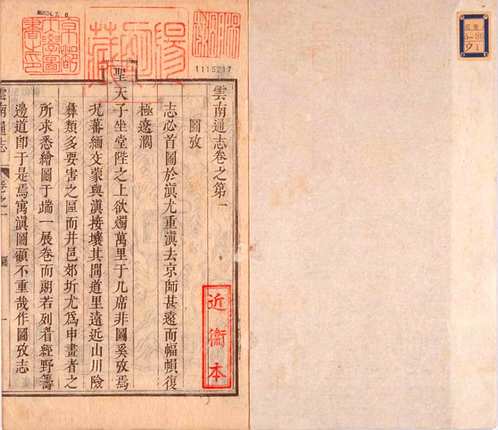 雲南通志卷之第一
圖攷
志必首圖於滇尤重滇去京師甚遠而幅幀復
極遼濶
聖天子坐堂陛之上欲燭萬里于几席非圖奚攷焉
尤蕃緬交蒙與滇接壤其間道里遠近山川險
彝類多要害之區而井邑郊圻尤為申畫者之
所求悉繪圖于端一展卷而朗若列眉經野籌
邊道即于是焉寓滇圖顧不重哉作圖攷志
雲南通志
卷之一
圖
一
近衞本
京都
帝國大學
圖書之印
陽明藏
1115217